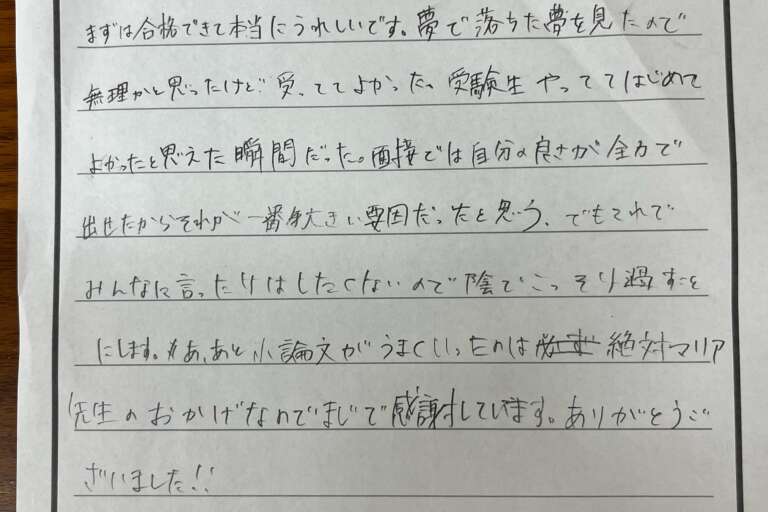 まずは合格できて本当にうれしいです。夢で落ちた夢を見たので
無理かと思ったけど受かっててよかった。受験生やっててはじめて
よかったと思えた瞬間だった。面接では自分の良さが全力で
出せたからそれが一番大きい要因だったと思う、でもそれで
みんなに言ったりはしたくないので陰でこっそり過すこと
にします。あ、あと小論文がうまくいったのは絶対マリア
先生のおかげなのでまじで感謝しています。ありがとうご
ざいました!!